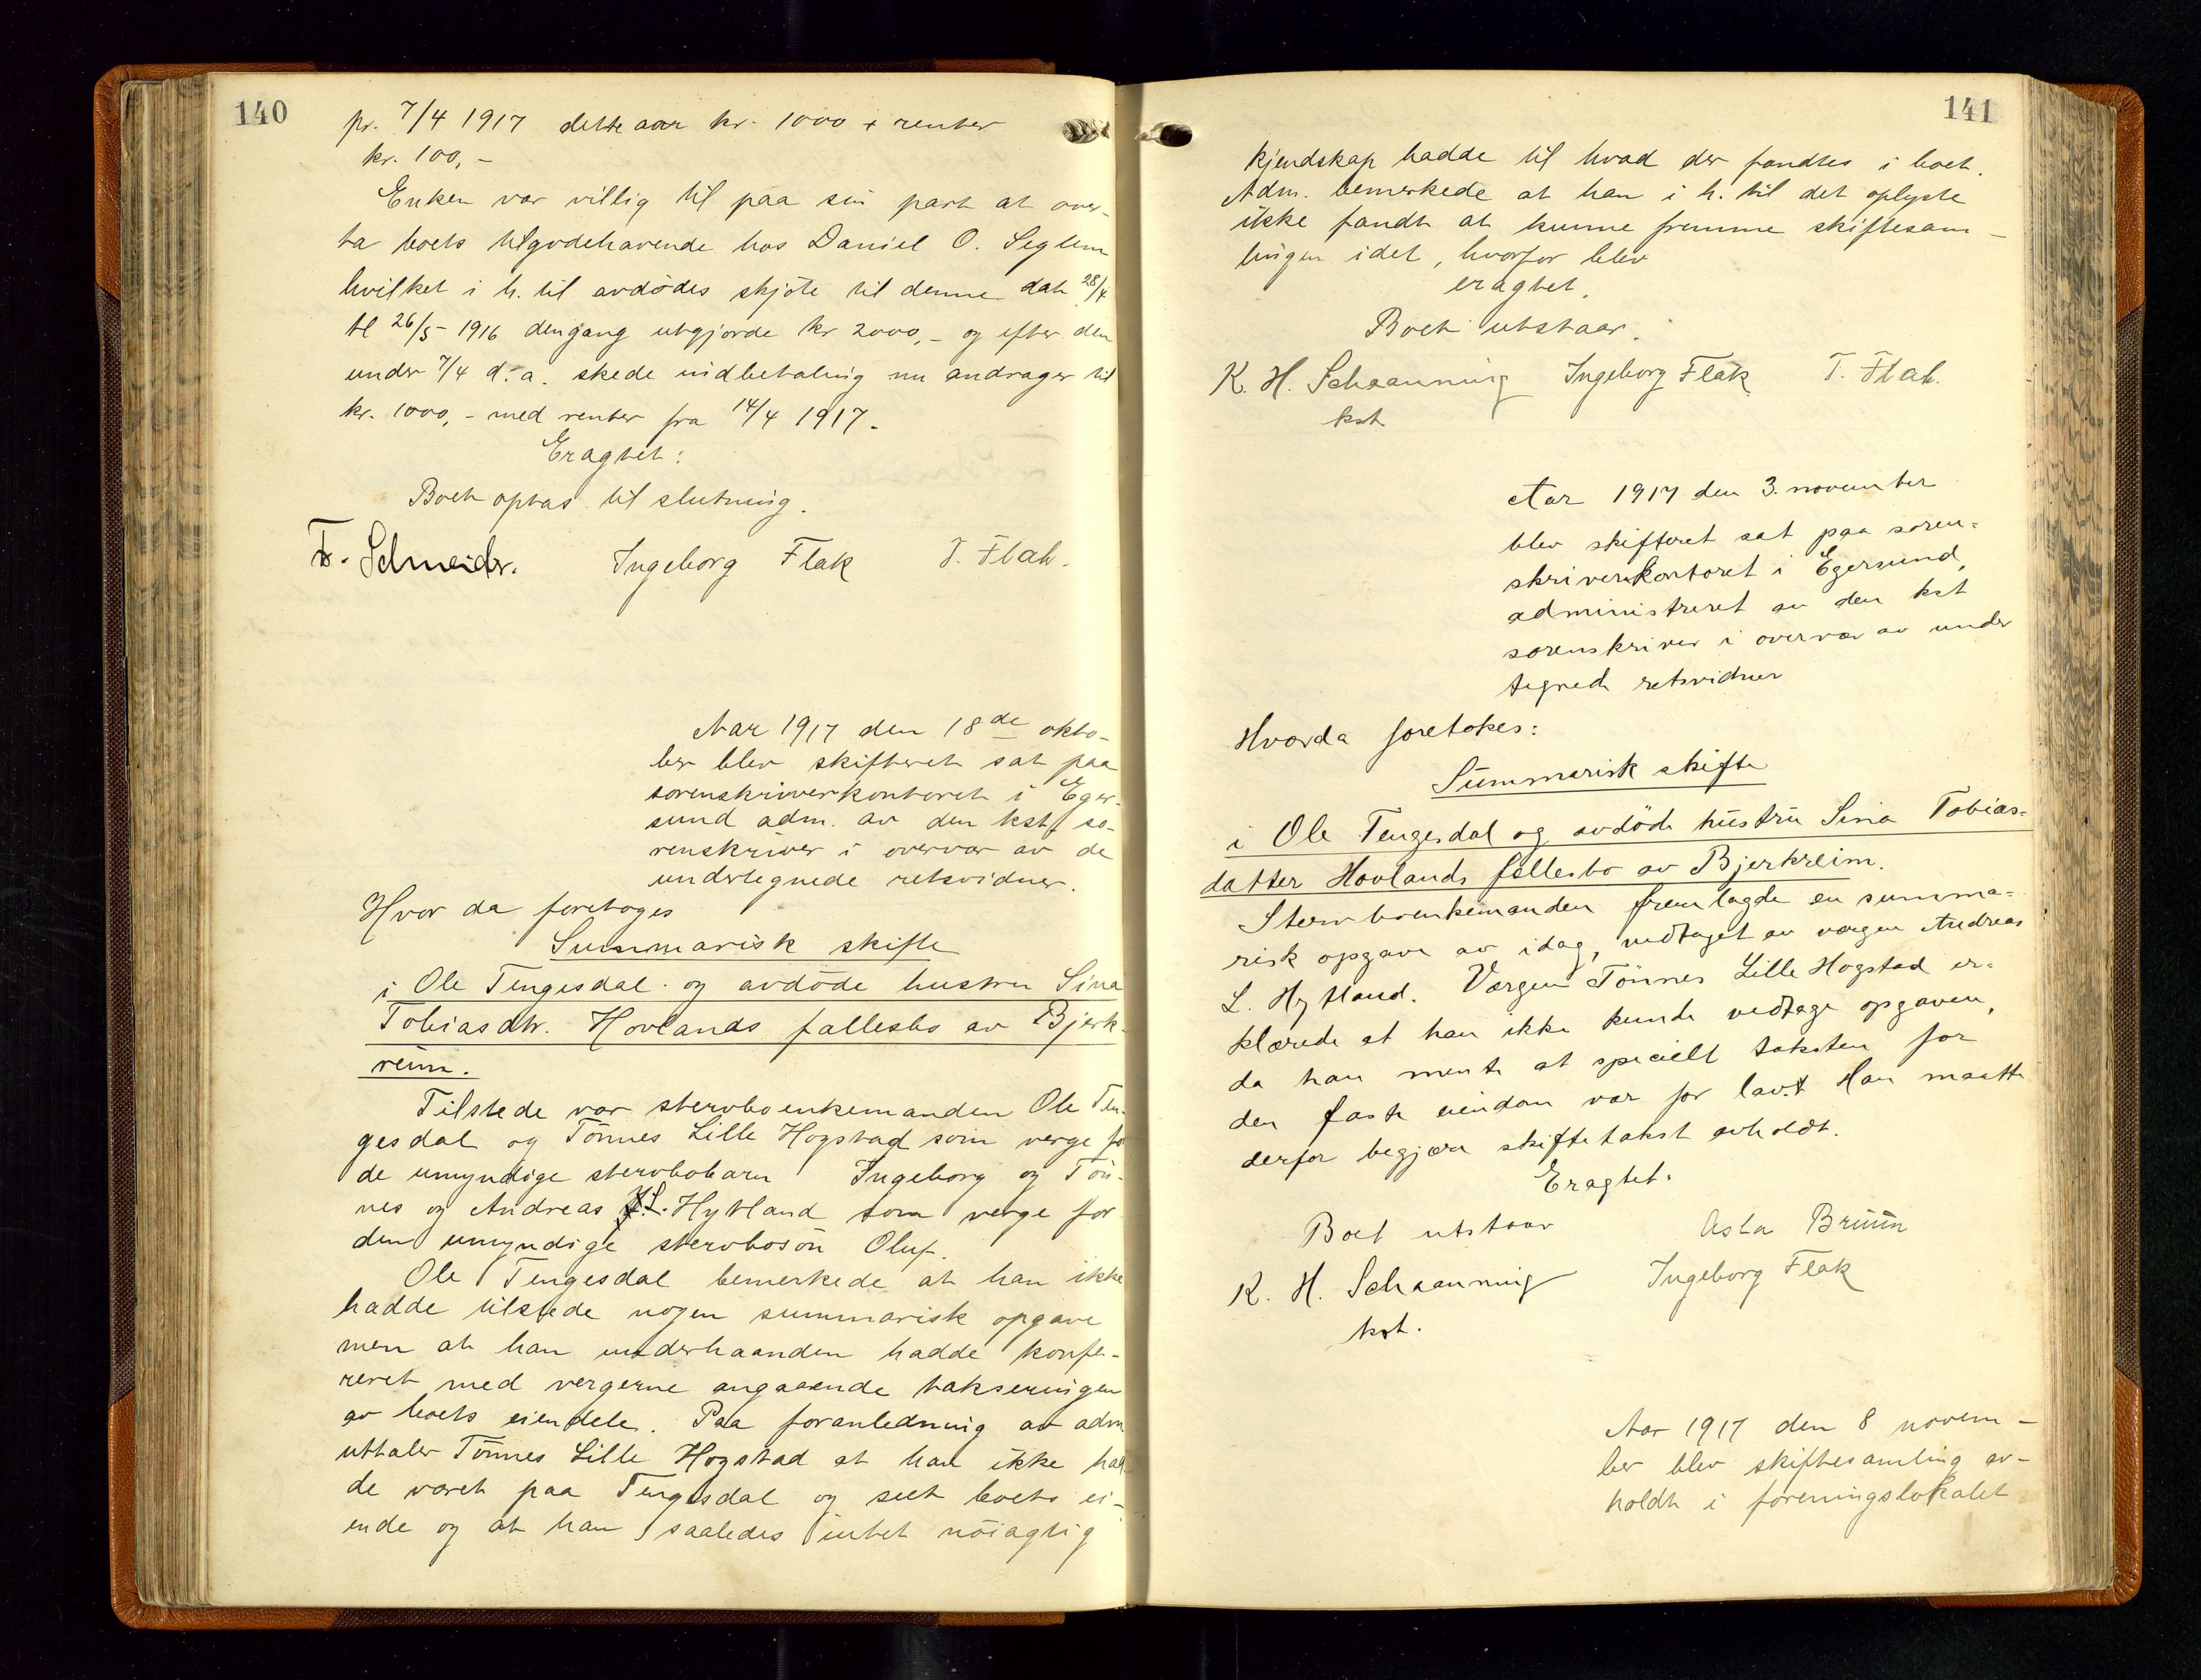 140
pr. 7/4 1917 dette aar kr. 1000 + renter
kr. 100,-
Enken var villig til paa sin part at over-
ta boets tilgodehavende hos Daniel O. Seglem
hvilket i h. til avdödes skjöte til denne dat 28/4
tl 26/5 1916 dengang utgjorde kr 2000,- og efter den
under 7/4 d. a. skede indbetaling nu andrager til
kr. 1000,- med renter fra 14/4 1917.
Eragtet:
Boet optas til slutning.
F. Schneider. Ingeborg Flak T. Flak.
Aar 1917 den 18de okto-
ber blev skifteret sat paa
sorenskriverkontoret i Eger-
sund adm. av den kst. so-
renskriver i overvær av de
undertegnede retsvidner.
Hvor da foretoges
Summarisk skifte
i Ole Tengesdal og avdöde hustru Sina
Tobiasdtr. Hovlands fællesbo av Bjerk-
reim.
Tilstede var stervboenkemanden Ole Ten-
gesdal og Tönnes Lille Hogstad som verge for
de umyndige stervbobarn Ingeborg og Tön-
nes og Andreas L. Hytland som verge for
den umyndige stervbosön Oluf.
Ole Tengesdal bemerkede at han ikke
hadde tilstede nogen summarisk opgave
men at han underhaanden hadde konfe-
reret med vergerne angaaende takseringen
av boets eiendele. Paa foranledning av adm
uttaler Tönnes Lille Hogstad at han ikke had
de været paa Tengesdal og seet boets ei-
ende og at han saaledes intet nöiagtig
141
kjendskap hadde til hvad der fandtes i boet.
Adm. bemerkede at han i h. til det oplyste
ikke fandt at kunne fremme skiftesam-
lingen idet, hvorfor blev
eragtet.
Boet utstaar.
K. H. Schaanning Ingeborg Flak T. Flak.
kst
Aar 1917 den 3. november
blev skifteret sat paa soren-
skriverkontoret i Egersund,
administreret av den kst
sorenskriver i overvær av under
tegnede retsvidner
Hvorda foretokes:
Summarisk skifte
i Ole Tengesdal og avdöde hustru Sina Tobias-
datter Hovlands fællesbo av Bjerkreim.
Stervboenkemanden fremlagde en summa-
risk opgave av idag, vedtaget av vægen Andreas
L. Hytland. Værgen Tönnes Lille Hogstad er-
klærede at han ikke kunde vedtage opgaven,
da han mente at specielt taksten for
den faste eiendom var for lavt. Han maatte
derfor begjære skiftetakst avholdt.
Eragtet.
Boet utstaar Asta Bruun
K. H. Schaanning Ingeborg Flak
kst.
Aar 1917 den 8 novem-
ber blev skiftesamling av-
holdt i foreningslokalet